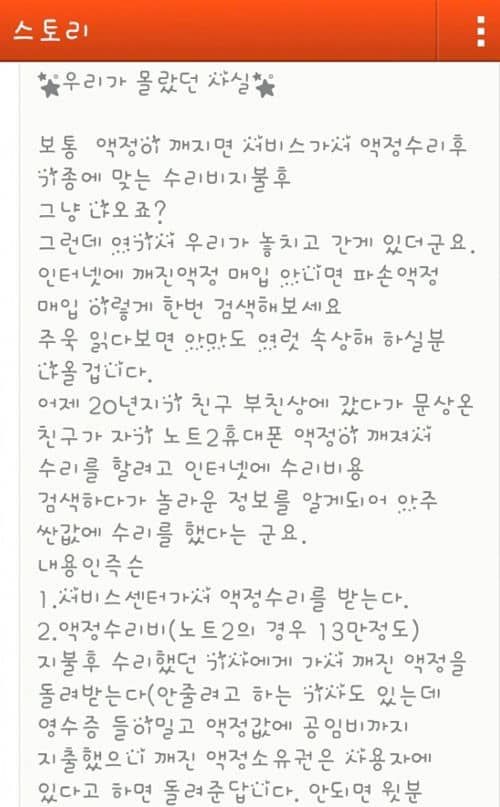 스토리
우리가 몰랐던 사실
보통 액정이 깨지면 서비스가서 액정수리후
기종에 맞는 수리비지불후
그냥 나오죠?
그런데 여기서 우리가 놓치고 간게 있더군요.
인터넷에 깨진액정 매입 아니면 파손액정
매입 이렇게 한번 검색해보세요
주욱 읽다보면 아마도 여럿 속상해 하실분
나올겁니다.
어제 20년지기 친구 부친상에 갔다가 문상온
친구가 자기 노트2휴대폰 액정이 깨져서
수리를 할려고 인터넷에 수리비용
검색하다가 놀라운 정보를 알게되어 아주
싼값에 수리를 했다는 군요.
내용인즉슨
1.서비스센터가서 액정수리를 받는다.
2.액정수리비(노트2의 경우 13만정도)
지불후 수리했던 기사에게 가서 깨진 액정을
돌려받는다(안줄려고 하는 기사도 있는데
영수증 들이밀고 액정값에 공임비까지
지출했으니 깨진 액정소유권은 사용자에
있다고 하면 돌려준답니다. 안되면 윗분